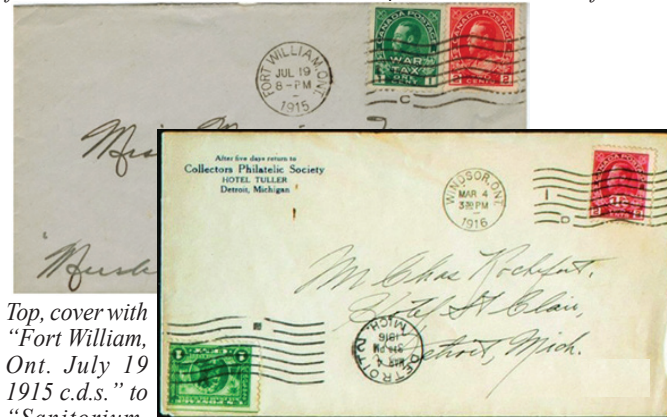 FORT WILLIAM, ONT.
JUL 19
8-PM
1915
C
CANADA POSTAGE
WAR
TAX
CANADA POSTAGE
2 2
Miss
After five days return to
Collectors Philatelic Society
HOTEL TULLER
Detroit, Michigan
WINDSOR, ONT.
MAR 4
PM
1916
D
CANADA POSTAGE
Mr Chas Rochefort.
Hotel St Clair,
Detroit, Mich.
DETROIT, MICH.
1916
U.S. POSTAGE
1 1
Top, cover with
“Fort William,
Ont. July 19
1915 c.d.s.” to
“Sanitorium